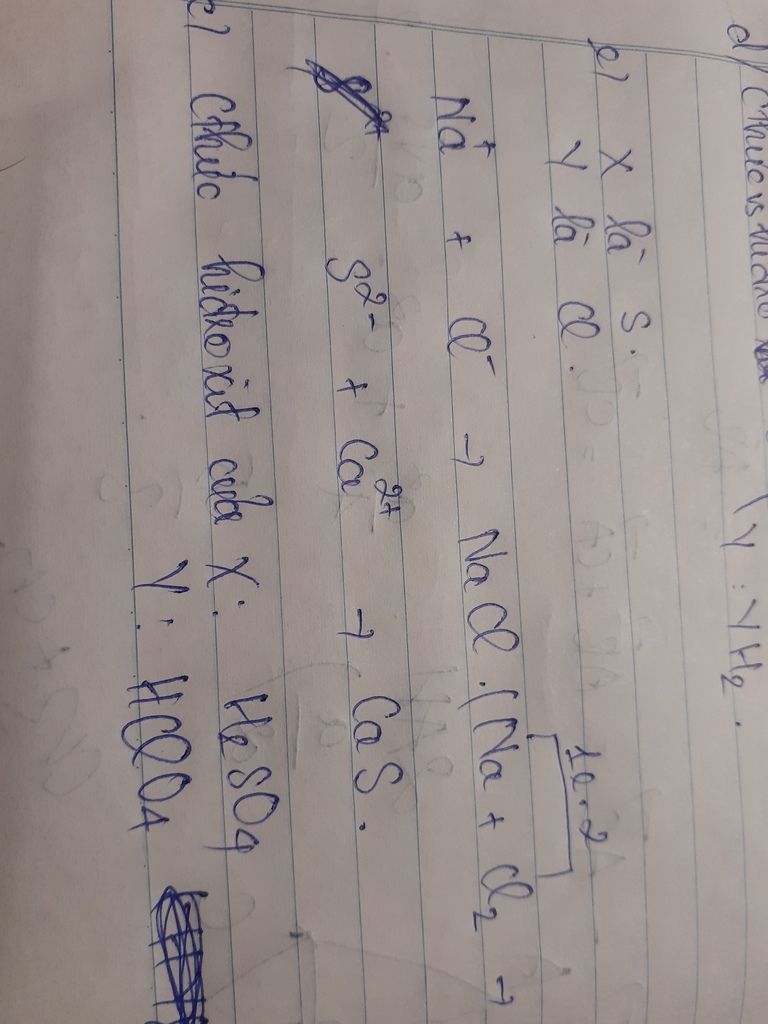 d) Cthức vs hidro
Y : YH₂.
e) X là S.
Y là Cl.
1e.2
Na⁺ + Cl⁻ → NaCl. (Na + Cl₂ →
S²⁻ + Ca²⁺ → CaS.
c) Cthức hidroxit của X: H₂SO₄
Y: HClO₄